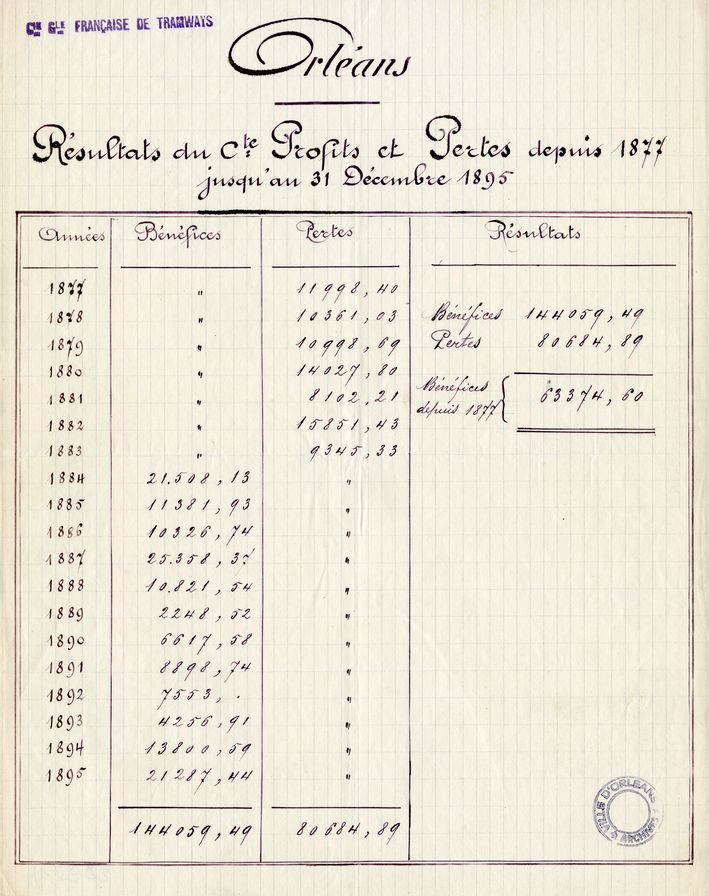 Cie Gle FRANÇAISE DE TRAMWAYS
Orléans
Résultats du Cte Profits et Pertes depuis 1877
jusqu'au 31 Décembre 1895
Années Bénéfices Pertes Résultats
1877 " 11998,40
1878 " 10361,03 Bénéfices 144059,49
1879 " 10998,69 Pertes 80684,89
1880 " 14027,80
1881 " 8102,21 Bénéfices depuis 1877 63374,60
1882 " 15851,43
1883 " 9345,33
1884 21.508,13 "
1885 11381,93 "
1886 10326,74 "
1887 25.358,37 "
1888 10.821,54 "
1889 2248,52 "
1890 6617,58 "
1891 8898,74 "
1892 7553, . "
1893 4256,91 "
1894 13800,59 "
1895 21287,44 "
144059,49 80684,89
VILLE D'ORLEANS
ARCHIVES